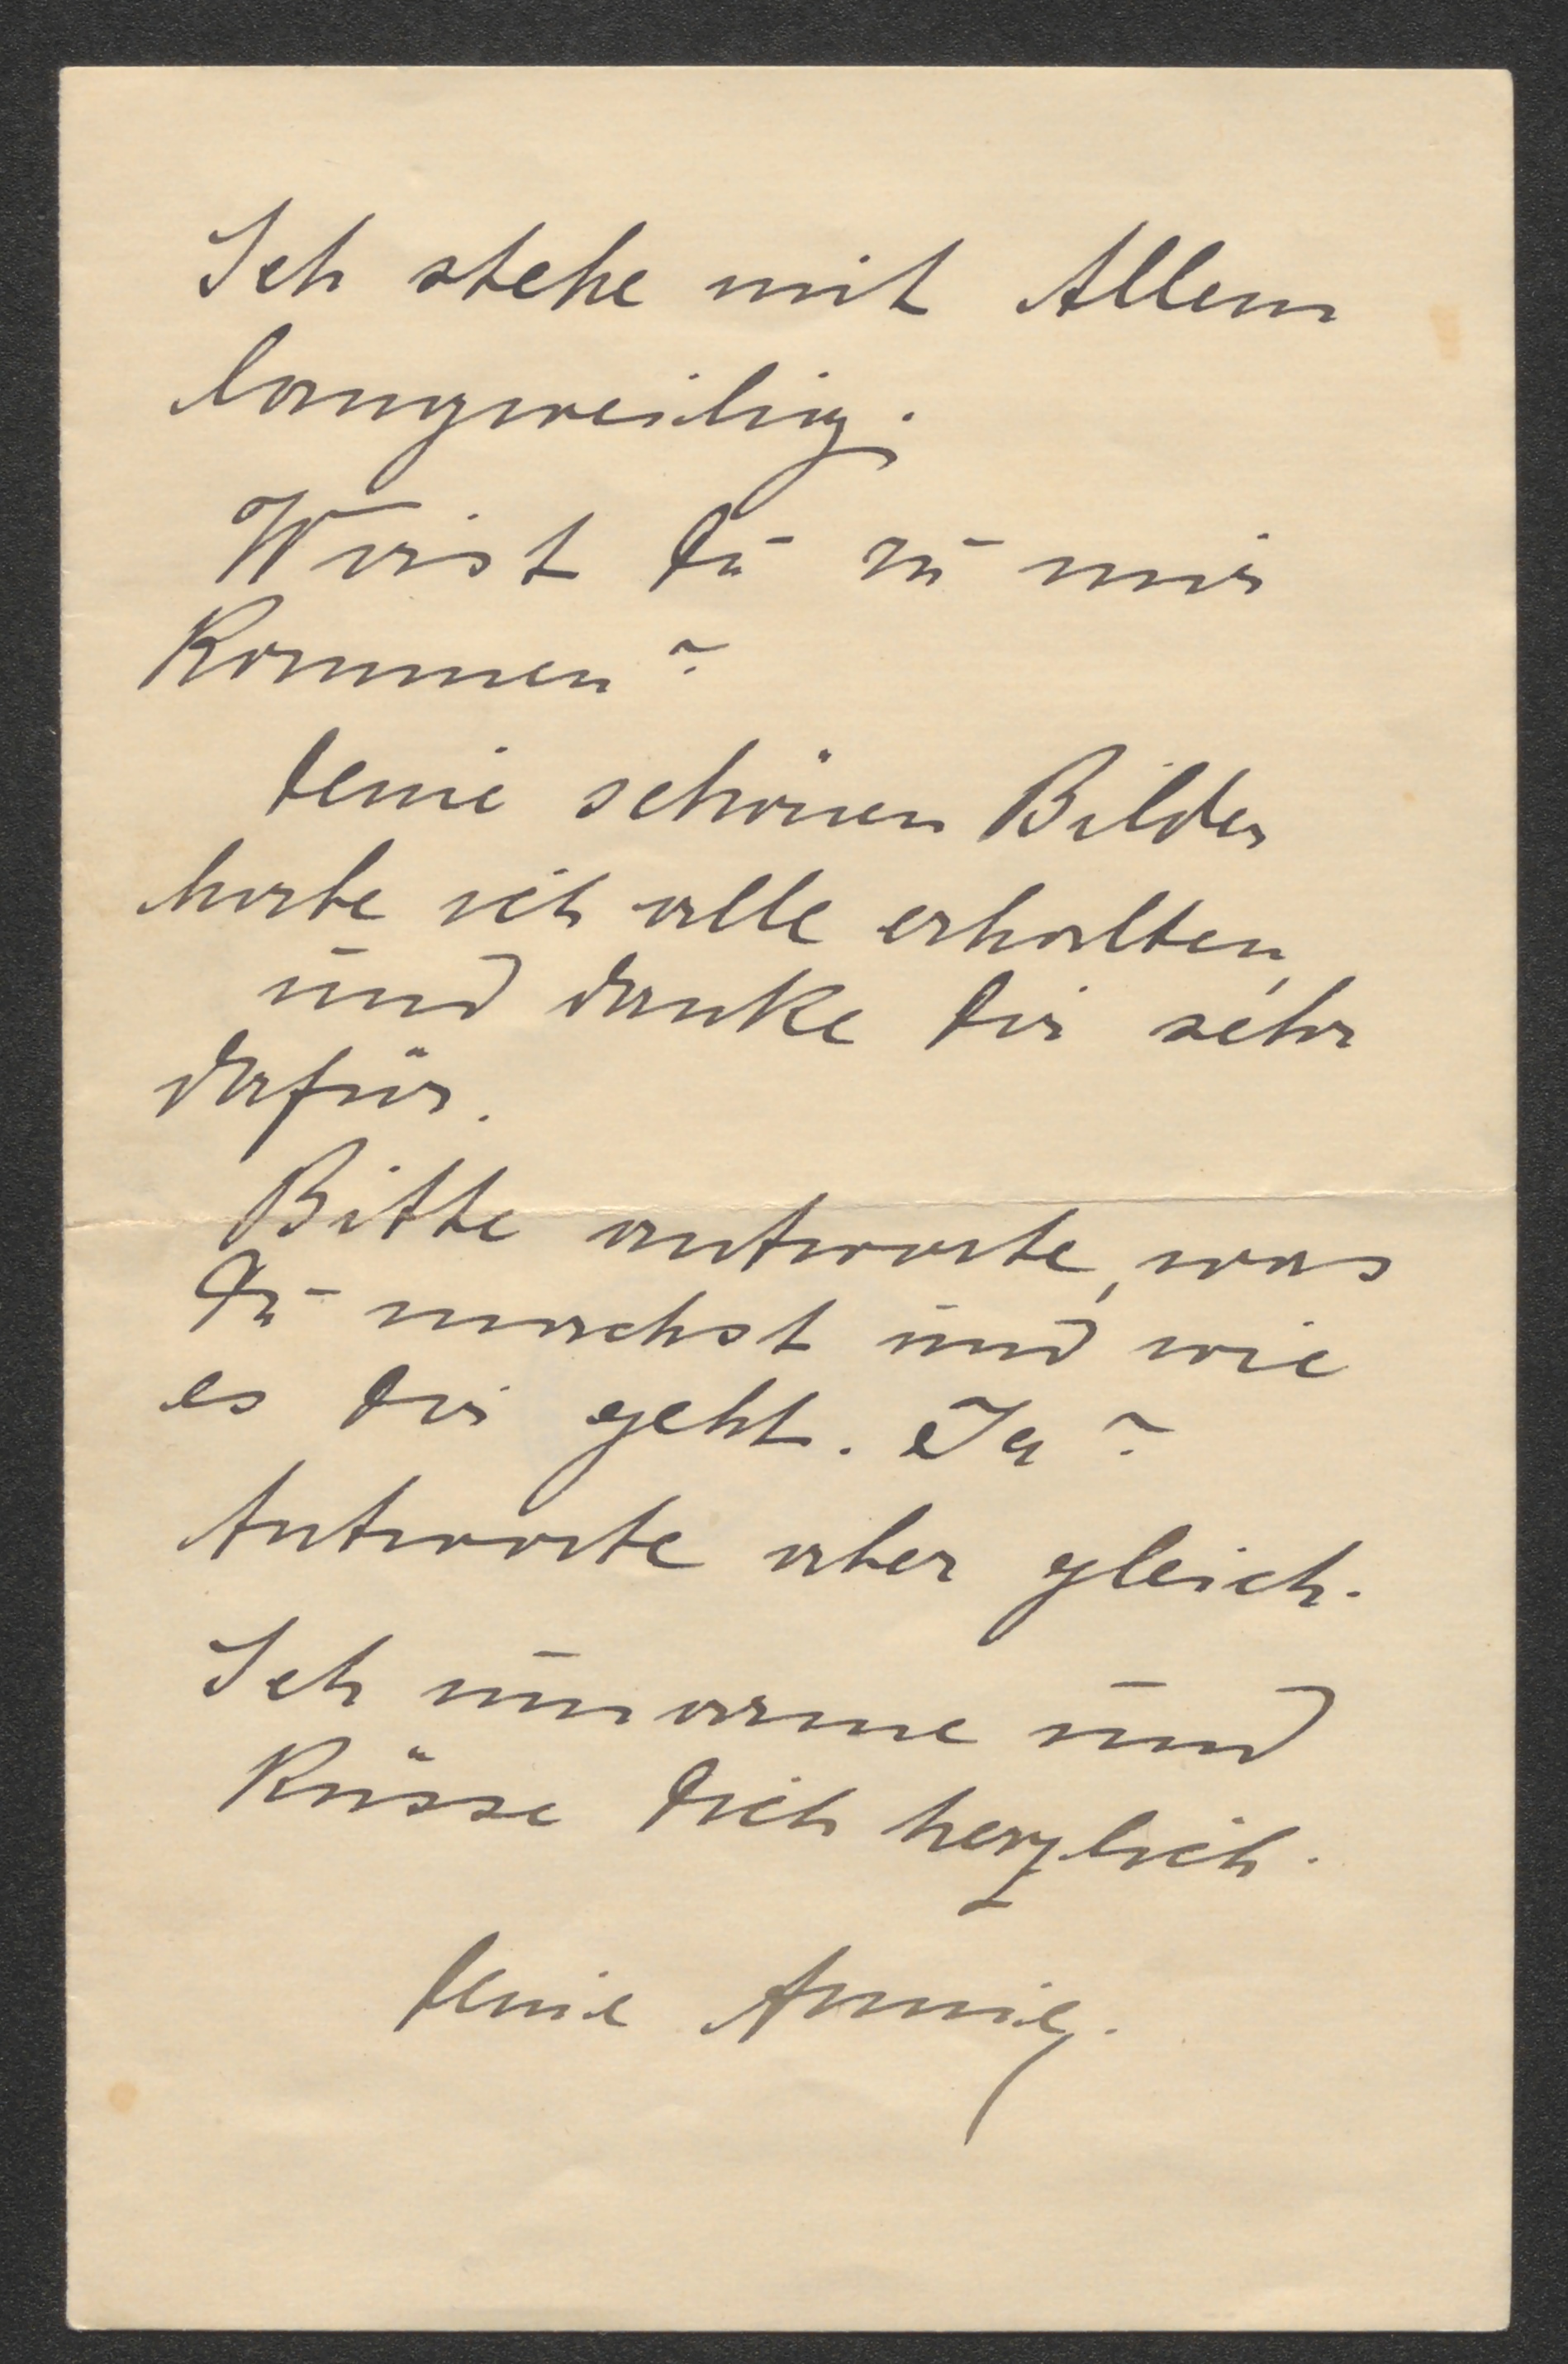 Ich stehe mit Allem
langweilig.
Wirst Du zu mir
kommen?
Deine schönen Bilder
habe ich alle erhalten,
und danke Dir sehr
dafür.
Bitte antworte, was
Du machst und wie
es Dir geht. Ja?
Antworte aber gleich.
Ich umarme und
küsse Dich herzlich.
Deine Annie.